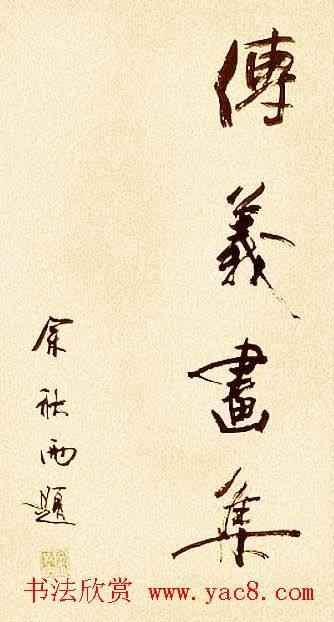 傳義畫集
余秋雨題
书法欣赏 www.yac8.com